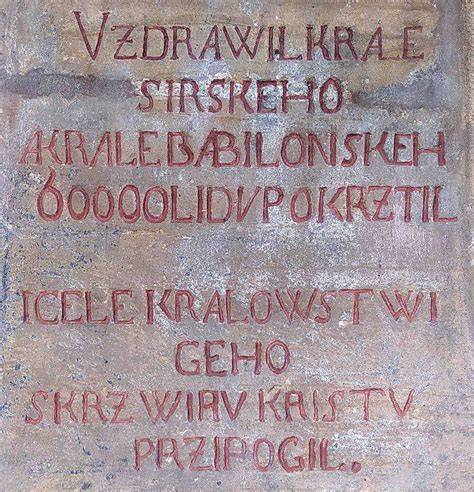 VZDRAWILKRALE
SIRSKEHO
AKRALEBABILONSKEH
60000LIDUPOKRZTIL
ICELE KRALOWSTWI
GEHO
SKRZ WIRU KRISTU
PRZIPOGIL.